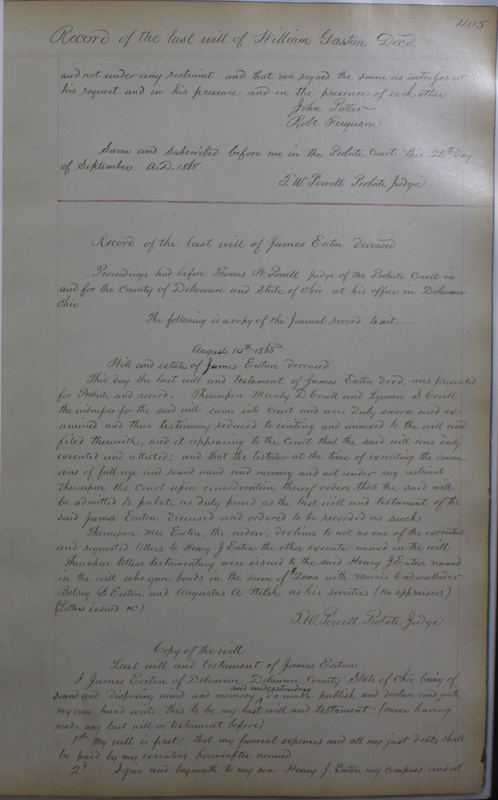 405
Record of the last will of William Gaston Decd.
and not under any restraint and that we signed the same as witnesses at
his request and in his presence and in the presence of each other
John Potter
Robt Ferguson
Sworn and subscribed before me in the Probate Court this 26th day
of September A.D. 1868
T. W. Powell Probate Judge
Record of the last will of James Eaton deceased
Proceedings had before Thomas W. Powell Judge of the Probate Court in
and for the County of Delaware and State of Ohio at his office in Delaware
Ohio
The following is a copy of the Journal record to wit.
August 10th 1868
Will and estate of James Eaton deceased
This day the last will and testament of James Eaton decd. was presented
for Probate and record. Thereupon Manly D Covill and Lyman S Covill
the witnesses for the said will came into Court and were duly sworn and ex-
amined and their testimony reduced to writing and annexed to the will and
filed therewith, and it appearing to the Court that the said will was duly
executed and attested; and that the testator at the time of executing the same
was of full age and sound mind and memory and not under any restraint
Thereupon the Court upon consideration thereof orders that the said will
be admitted to probate as duly proved as the last will and testament of the
said James Eaton deceased and ordered to be recorded as such
Thereupon Mrs Eaton, the widow, declines to act as one of the executors
and requested letters to Henry J Eaton the other executor named in the will
Thereupon letters testamentary were issued to the said Henry J Eaton named
in the will who gave bonds in the sum of with Morris Cadwallader
Betsey Eaton and Augustus A Welsh as his sureties (no appraisers)
(Letters issued &c)
T. W. Powell Probate Judge
Copy of the will
Last will and testament of James Eaton
I James Eaton of Delaware Delaware County State of Ohio being of
sound and disposing mind and memory and understanding do make publish and declare and with
my own hand write this to be my last will and testament: (never having
made any last will or testament before)
1st My will is first: that my funeral expenses and all my just debts shall
be paid by my executors hereinafter named
2d I give and bequeath to my son Henry J. Eaton my compass and all